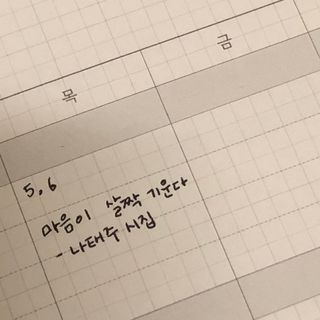 목 금
5, 6
마음이 살짝 기운다
- 나태주 시집